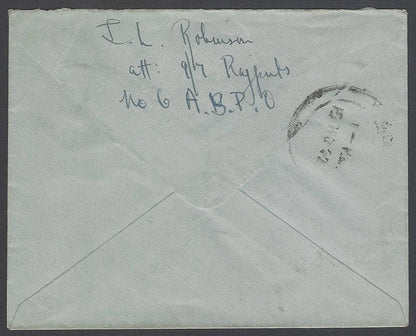 J. L. Robinson
att: 9/7 Rajputs
No 6 A.B.P.O